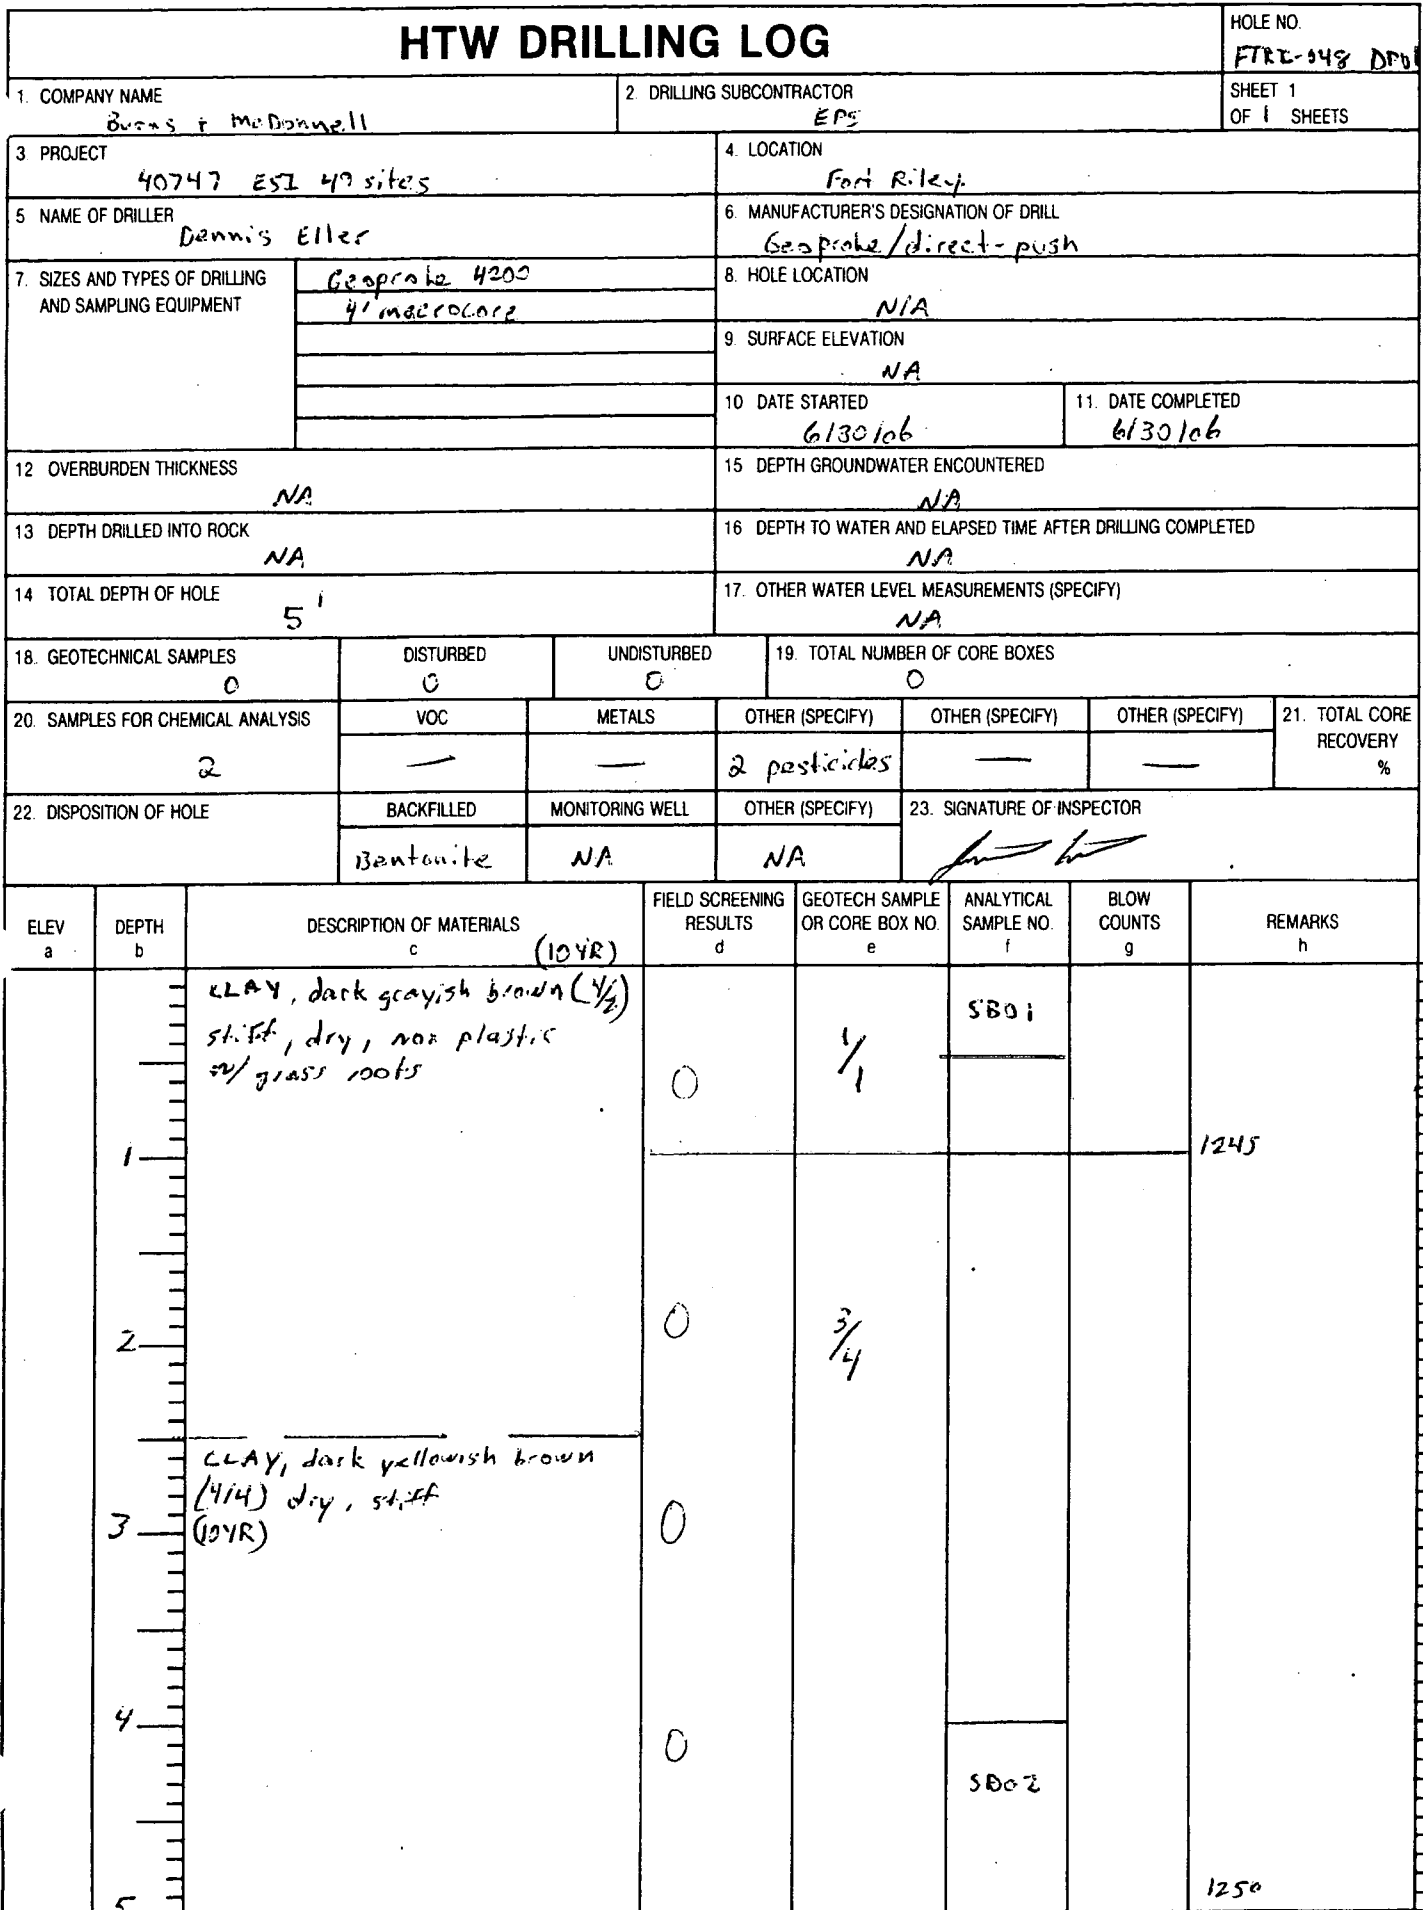 HTW DRILLING LOG
HOLE NO.
FTRI-048 DP01
1. COMPANY NAME
Burns & McDonnell
2. DRILLING SUBCONTRACTOR
EPS
SHEET 1
OF 1 SHEETS
3. PROJECT
40747 ESI 49 sites
4. LOCATION
Fort Riley
5 NAME OF DRILLER
Dennis Eller
6. MANUFACTURER'S DESIGNATION OF DRILL
Geoprobe/direct-push
7. SIZES AND TYPES OF DRILLING
AND SAMPLING EQUIPMENT
Geoprobe 4200
4' macrocore
8. HOLE LOCATION
N/A
9. SURFACE ELEVATION
NA
10 DATE STARTED
6/30/06
11. DATE COMPLETED
6/30/06
12 OVERBURDEN THICKNESS
NA
15 DEPTH GROUNDWATER ENCOUNTERED
NA
13 DEPTH DRILLED INTO ROCK
NA
16 DEPTH TO WATER AND ELAPSED TIME AFTER DRILLING COMPLETED
NA
14 TOTAL DEPTH OF HOLE
5'
17. OTHER WATER LEVEL MEASUREMENTS (SPECIFY)
NA
18. GEOTECHNICAL SAMPLES
0
DISTURBED
0
UNDISTURBED
0
19. TOTAL NUMBER OF CORE BOXES
0
20. SAMPLES FOR CHEMICAL ANALYSIS
2
VOC
—
METALS
—
OTHER (SPECIFY)
2 pesticides
OTHER (SPECIFY)
—
OTHER (SPECIFY)
—
21. TOTAL CORE
RECOVERY
%
22. DISPOSITION OF HOLE
BACKFILLED
Bentonite
MONITORING WELL
NA
OTHER (SPECIFY)
NA
23. SIGNATURE OF INSPECTOR
ELEV
a
DEPTH
b
DESCRIPTION OF MATERIALS
c (10YR)
FIELD SCREENING
RESULTS
d
GEOTECH SAMPLE
OR CORE BOX NO.
e
ANALYTICAL
SAMPLE NO.
f
BLOW
COUNTS
g
REMARKS
h
CLAY, dark grayish brown (4/2)
stiff, dry, non plastic
w/ grass roots
SB01
1/1
0
1
1245
0
3/4
2
CLAY, dark yellowish brown
(4/4) dry, stiff
(10YR)
3
0
4
0
SB02
1250
5